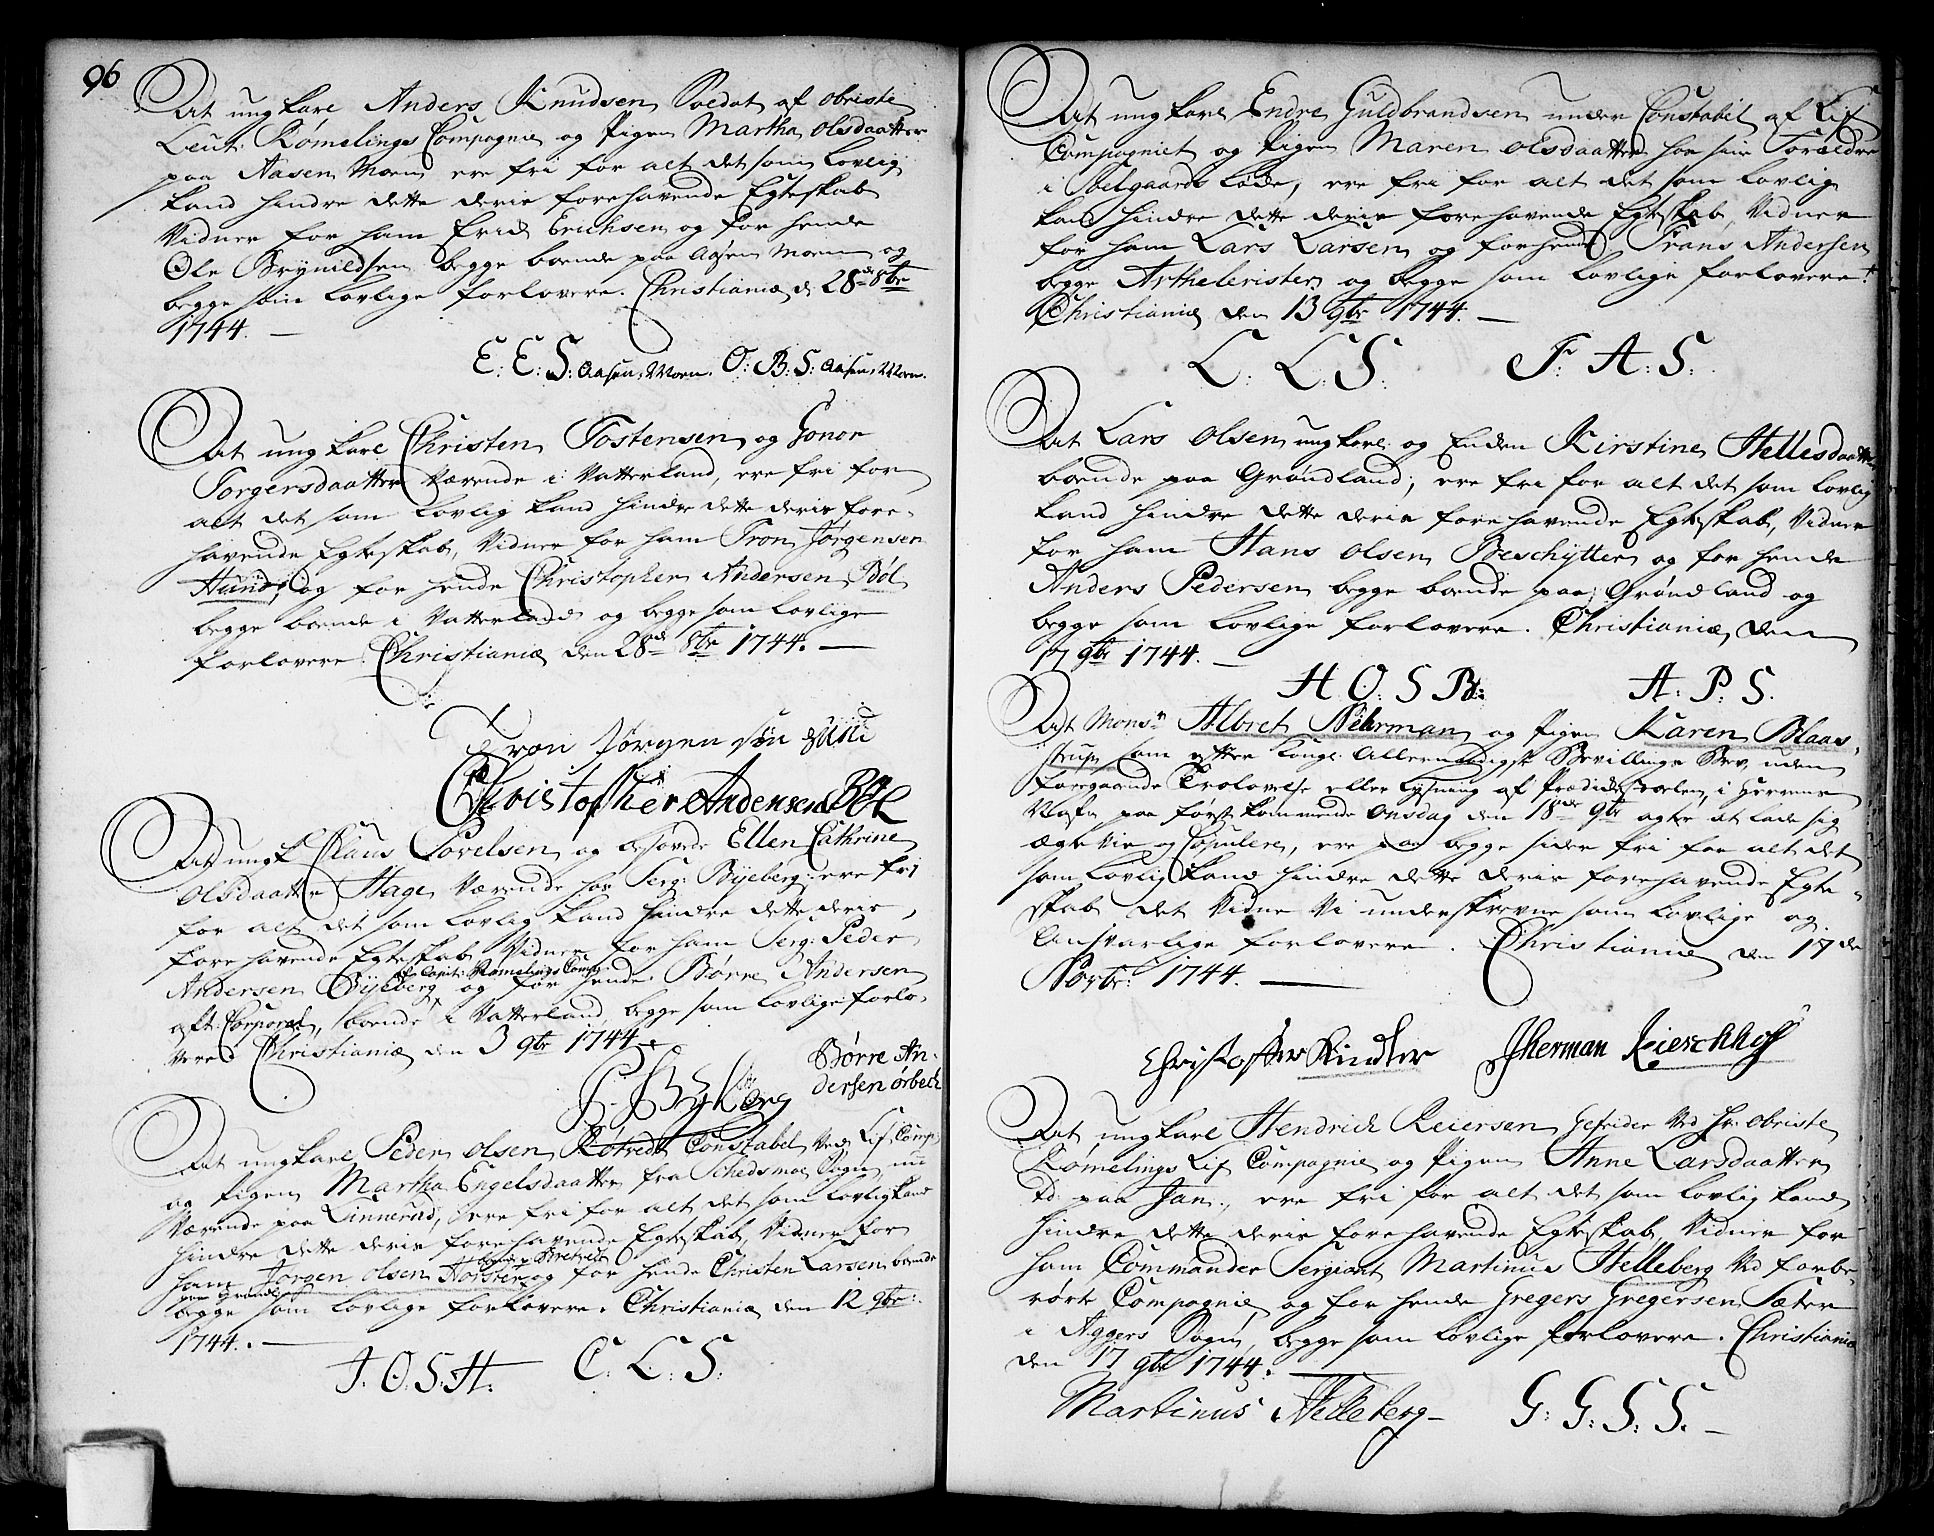 96
At ung Karl Anders Knudsen Soldat af Obriste
Leut: Rømelings Compagnie og Pigen Martha Olsdaatter
paa Aasen Moen, ere fri for alt det som lovlig
kand hindre dette deris forehavende Egteskab
Vidner for ham Erich Erichsen og for hende
Ole Brynildsen begge boende paa Aasen Moen og
begge som lovlige forlovere. Christiania d: 28de 8br
1744.
E: E: S: Aasen Moen. O: B: S: Aasen Moen.
At ung Karl Christen Tostensen og Gonor
Torgersdaatter Værende i Vatterland, ere fri for
alt det som lovlig kand hindre dette deris fore-
havende Egteskab, Vidner for ham Tron Jørgensen
Hund, og for hende Christopher Andersen Bøl
begge boende i Vatterland og begge som lovlige
forlovere. Christiania den 28de 8br 1744.
Tron Jørgen søn Hund
Christopher Andersen Bøl
At ung K: Claus Povelsen og besovede Ellen Cathrine
Olsdaatter Hage Værende hos Serg: Byeberg: ere fri
for alt det som lovlig kand hindre dette deris
forehavende Egteskab Vidner for ham Serg: Peder
Andersen Byeberg og for hende Børre Andersen
af Capit: Rømelings Comp:
aft: Corporal, boende i Vatterland, begge som lovlige forlo-
vere Christiania den 3 9br 1744.
P: A: Byberg
Børre An-
dersen ørbech
At ung Karl Peder Olsen Røtvedt Constabel Ved Lif Comp:
og Pigen Martha Engelsdaatter fra Schedsmoe Sogn nu
Værende paa Linnerud, ere fri for alt det som lovlig kand
hindre dette deris forehavende Egteskab, Vidner for
ham Jørgen Olsen Holster og for hende Christen Larsen boende
begge som lovlige forlovere. Christiania den 12 9br:
1744.
J. O: S: H: C: L: S:
At ung Karl Endre Guldbrandsen under Constabel af Lif
Compagniet og Pigen Maren Olsdaatter hos sine Forældre
i Volgaards Løcke, ere fri for alt det som lovlig
kand hindre dette deris forehavende Egteskab, Vidner
for ham Lars Larsen og for hende Frans Andersen
begge Arthelerister og begge som lovlige forlovere.
Christiania den 13 9br 1744.
L: L: S: F: A: S:
At Lars Olsen ung Karl og Enken Kirstine Hellesdaatter
boende paa Grønland, ere fri for alt det som lovlig
kand hindre dette deris forehavende Egteskab, Vidner
for ham Hans Olsen Beschytter og for hende
Anders Pedersen begge boende paa Grønland og
begge som lovlige forlovere. Christiania, den
17 9br 1744.
H: O: S B: A: P: S.
At Monsr Albret Nehrman og Pigen Karen Blaas-
trup som efter Kongl: Allernaadigst Bevillings Brev, uden
foregaaende Trolovelse eller lysning af Prædickestoelen, i Herrens
Nafn paa førstkommende Onsdag den 18de 9br agter at lade sig
ægteVie og Copulere, ere paa begge sider fri for alt det
som lovlig kand hindre dette deris forehavende Egte-
skab det Vidne Vi underskrevne som lovlige og
Ansvarlige forlovere. Christiania den 17de
Novbr: 1744.
Christoffer Kindler JHerman Leierchhof
At ung Karl Hendrich Reiersen Gefrider Ved Hr: Obriste
Rømelings Lif Compagnie og Pigen Anne Larsdaatter
T: paa Jan, ere fri for alt det som lovlig kand
hindre dette deris forehavende Egteskab, Vidner for
ham Commander Sergiant Martinus Helleberg Ved forbe-
rørte Compagnie, og for hende Gregers Gregersen Sæter
i Aggers Sogn, begge som lovlige forlovere. Christiania
den 17 9br 1744.
Martinus Helleberg G: G: S: S.